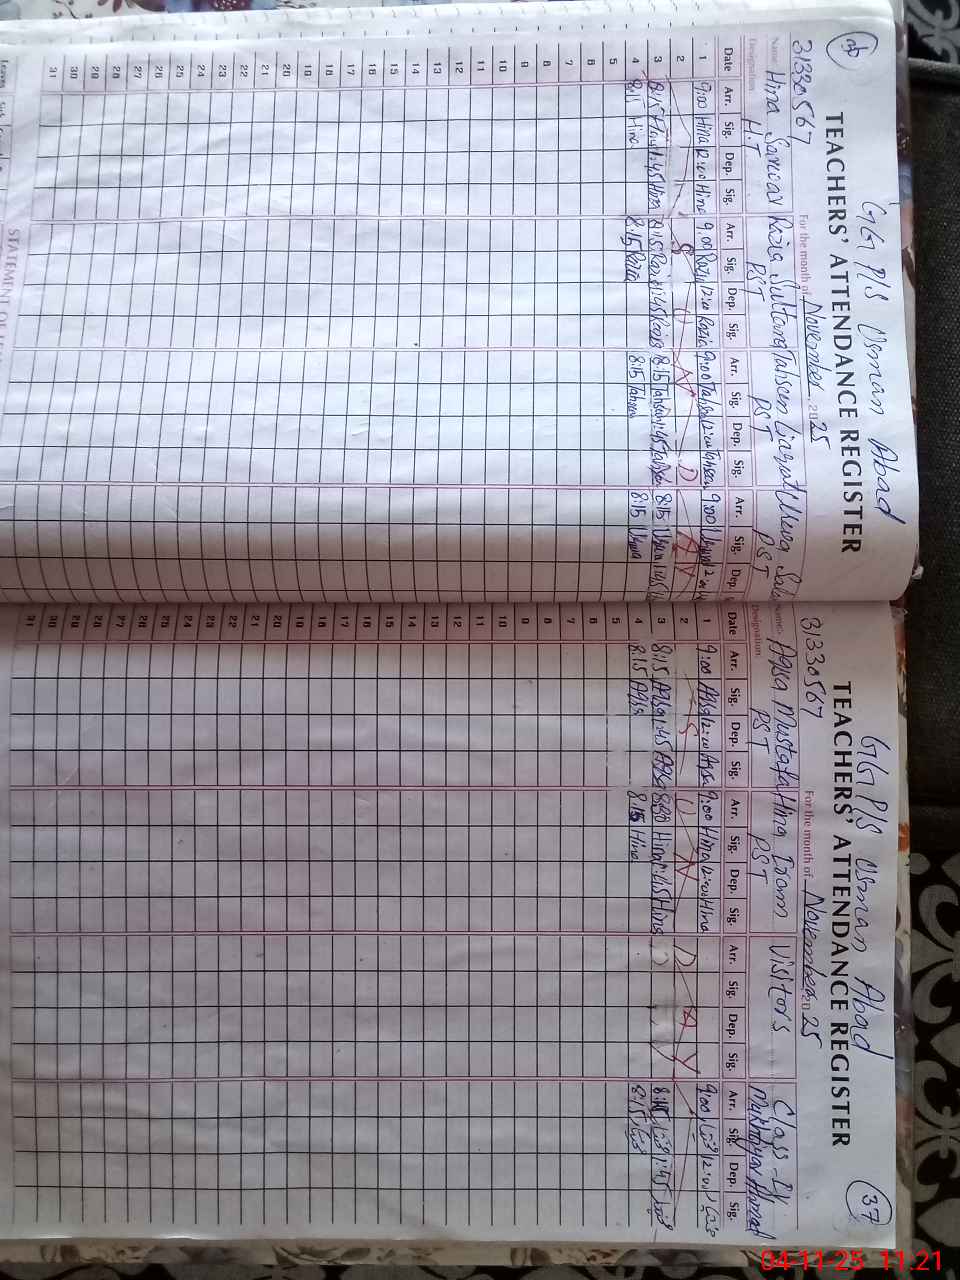 36
GG P/S Usman Abad
TEACHERS' ATTENDANCE REGISTER
31330567 For the month of November 2025
Name Hina Sarwar Razia Sultana Tahseen Liaqat
Designation H.T PST PST PST
Date Arr. Sig. Dep. Sig. Arr. Sig. Dep. Sig. Arr. Sig. Dep. Sig. Arr. Sig. Dep.
1 9:00 Hina 12:00 Hina 9:00 Razia 12:00 Razia 9:00 12:00 9:00
2 S U N D A Y
3 8:15 Hina 1:45 Hina 8:15 Razia 1:45 Razia 8:15 1:45 8:15 1:45
4 8:15 Hina 8:15 Razia 8:15 8:15
5
6
7
8
9
10
11
12
13
14
15
16
17
18
19
20
21
22
23
24
25
26
27
28
29
30
31
37
GG P/S Usman Abad
TEACHERS' ATTENDANCE REGISTER
31330567 For the month of November 2025
Name Aqsa Mustafa Hina Visitors Class-IV
Designation PST PST Ahmad
Date Arr. Sig. Dep. Sig. Arr. Sig. Dep. Sig. Arr. Sig. Dep. Sig. Arr. Sig. Dep. Sig.
1 9:00 Aqsa 12:00 Aqsa 9:00 Hina 12:00 Hina 9:00 12:00
2 S U N D A Y
3 8:15 Aqsa 1:45 Aqsa 8:30 Hina 1:45 Hina 8:15 1:45
4 8:15 Aqsa 8:15 Hina 8:15
5
6
7
8
9
10
11
12
13
14
15
16
17
18
19
20
21
22
23
24
25
26
27
28
29
30
31
04-11-25 11:21